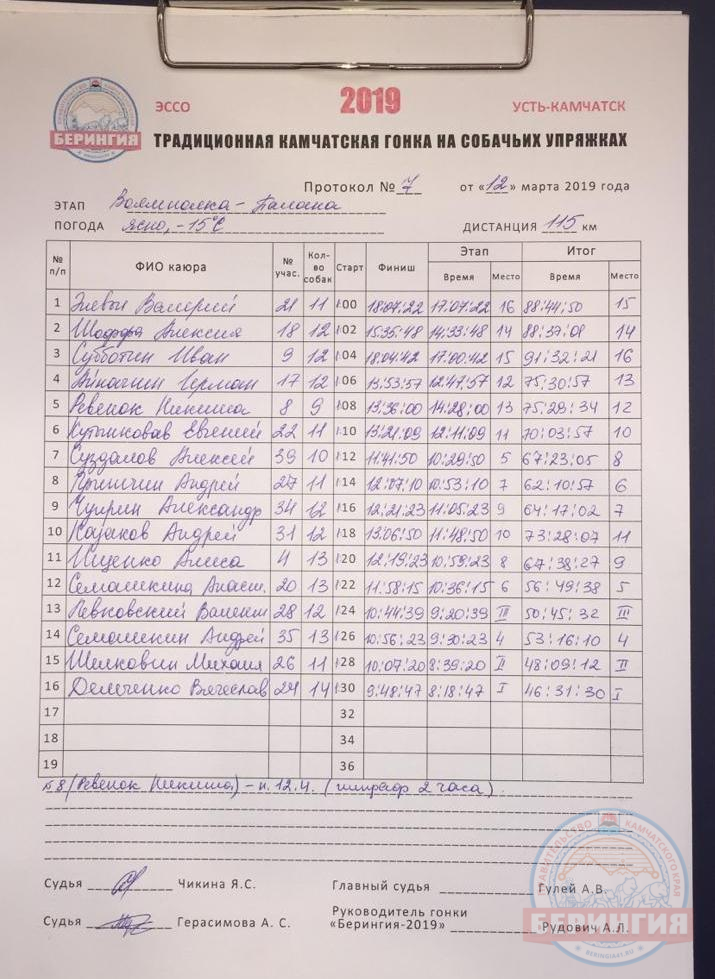 БЕРИНГИЯ
ЭССО 2019 УСТЬ-КАМЧАТСК
ТРАДИЦИОННАЯ КАМЧАТСКАЯ ГОНКА НА СОБАЧЬИХ УПРЯЖКАХ
Протокол № 7 от «12» марта 2019 года
ЭТАП Воямполка - Палана
ПОГОДА Ясно, -15°С ДИСТАНЦИЯ 115 км
№ п/п ФИО каюра № учас. Кол-во собак Старт Финиш Этап Итог
Время Место Время Место
1 Эивын Валерий 21 11 1:00 18:07:22 17:07:22 16 88:44:50 15
2 Алексия 18 12 1:02 15:35:48 14:33:48 14 88:37:01 14
3 Субботин Иван 9 12 1:04 18:04:42 17:00:42 15 91:32:21 16
4 Айнагин Герман 17 12 1:06 13:53:57 12:47:57 12 75:30:57 13
5 Ревенок Никита 8 9 1:08 13:36:00 14:28:00 13 75:29:34 12
6 Евгений 22 11 1:10 13:21:09 12:11:09 11 70:03:57 10
7 Суздалов Алексей 39 10 1:12 11:41:50 10:29:50 5 67:23:05 8
8 Притчин Андрей 27 11 1:14 12:07:10 10:53:10 7 62:10:57 6
9 Чуприн Александр 34 12 1:16 12:21:23 11:05:23 9 64:17:02 7
10 Казаков Андрей 31 12 1:18 13:06:50 11:48:50 10 73:28:07 11
11 Ищенко Алиса 4 13 1:20 12:19:23 10:59:23 8 67:38:27 9
12 Семашкина Анаст. 20 13 1:22 11:58:15 10:36:15 6 56:49:38 5
13 Левковский Валент 28 12 1:24 10:44:39 9:20:39 III 50:45:32 III
14 Семашкин Андрей 35 13 1:26 10:56:23 9:30:23 4 53:16:10 4
15 Шелковин Михаил 26 11 1:28 10:07:20 8:39:20 II 48:09:12 II
16 Демченко Вячеслав 24 14 1:30 9:48:47 8:18:47 I 46:31:30 I
17 32
18 34
19 36
№8 (Ревенок Никита) - п. 12.4. (штраф 2 часа)
Судья Чикина Я.С. Главный судья Гулей А.В.
Судья Герасимова А. С. Руководитель гонки «Берингия-2019» Рудович А.Л.
ПРАВИТЕЛЬСТВО КАМЧАТСКОГО КРАЯ
БЕРИНГИЯ